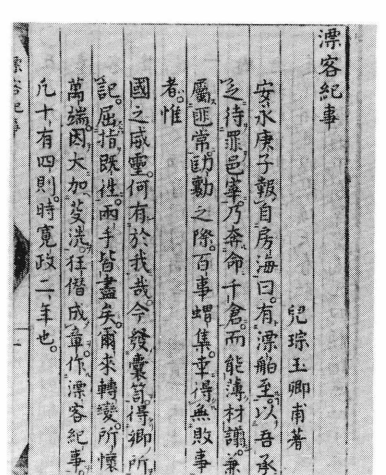 漂客紀事
兒琮玉卿甫著
安永庚子報自房海曰有漂舶至以吾承
乏待罪邑宰乃奔命千倉而能薄材譾兼
屬匪常劻勷之際百事蝟集幸得無敗事
者惟
國之威靈何有於我哉今發囊笥得鄉所
記屈指既往兩手皆盡矣爾來轉變所懷
萬端因大加芟洗狂僭成章作漂客紀事
凡十有四則時寛政二年也
漂客紀事
一